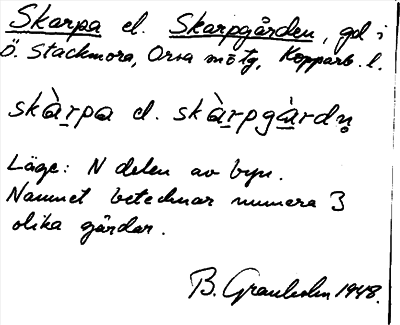 Skarpa el. Skarpgården, gd i
Ö. Stackmora, Orsa sn o tg, Kopparb. l.
skàrpa el. skàrpgàrdn̥
Läge: N delen av byn.
Namnet betecknar numera 3
olika gårdar.
B. Granholm 1948.